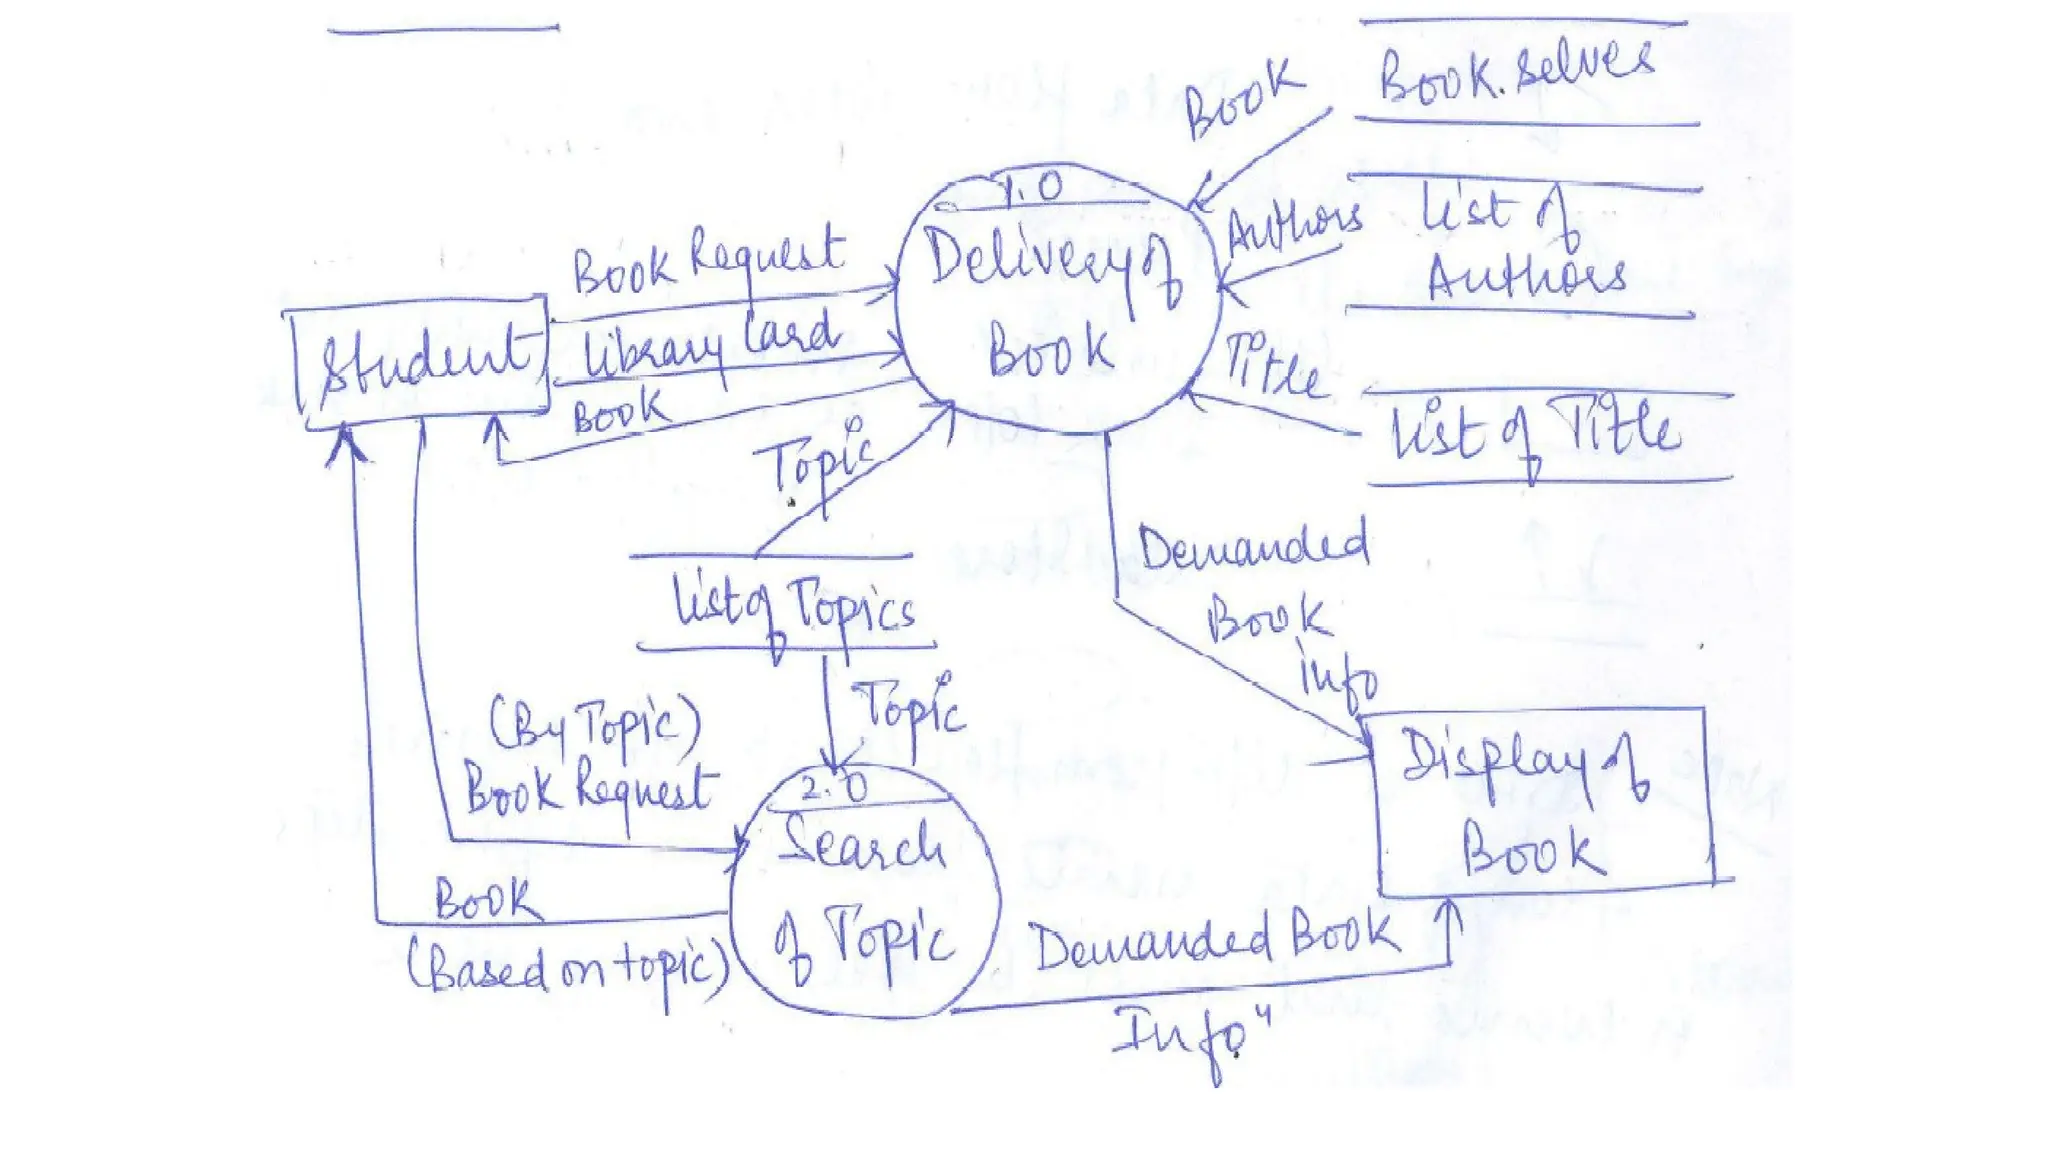 Book
Book.Selves
1.0
Delivery of
Book
Authors
List of
Authors
Book Request
Library Card
Book
Student
Title
List of Title
Topic
List of Topics
Topic
Demanded
Book
info
(By Topic)
Book Request
2.0
Search
of Topic
Display of
Book
Book
(Based on topic)
Demanded Book
Info"